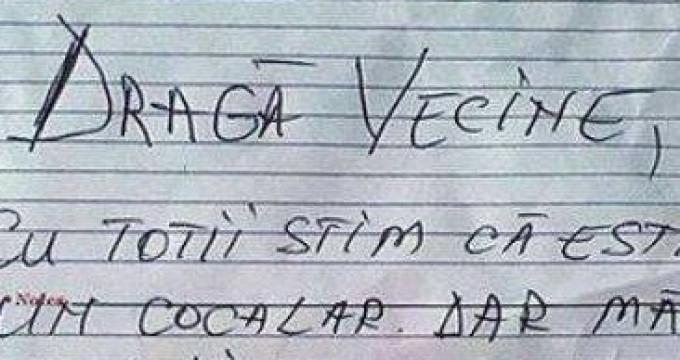 DRAGĂ VECINE,
CU TOTII STIM CĂ EST
UN COCALAR. DAR MĂ